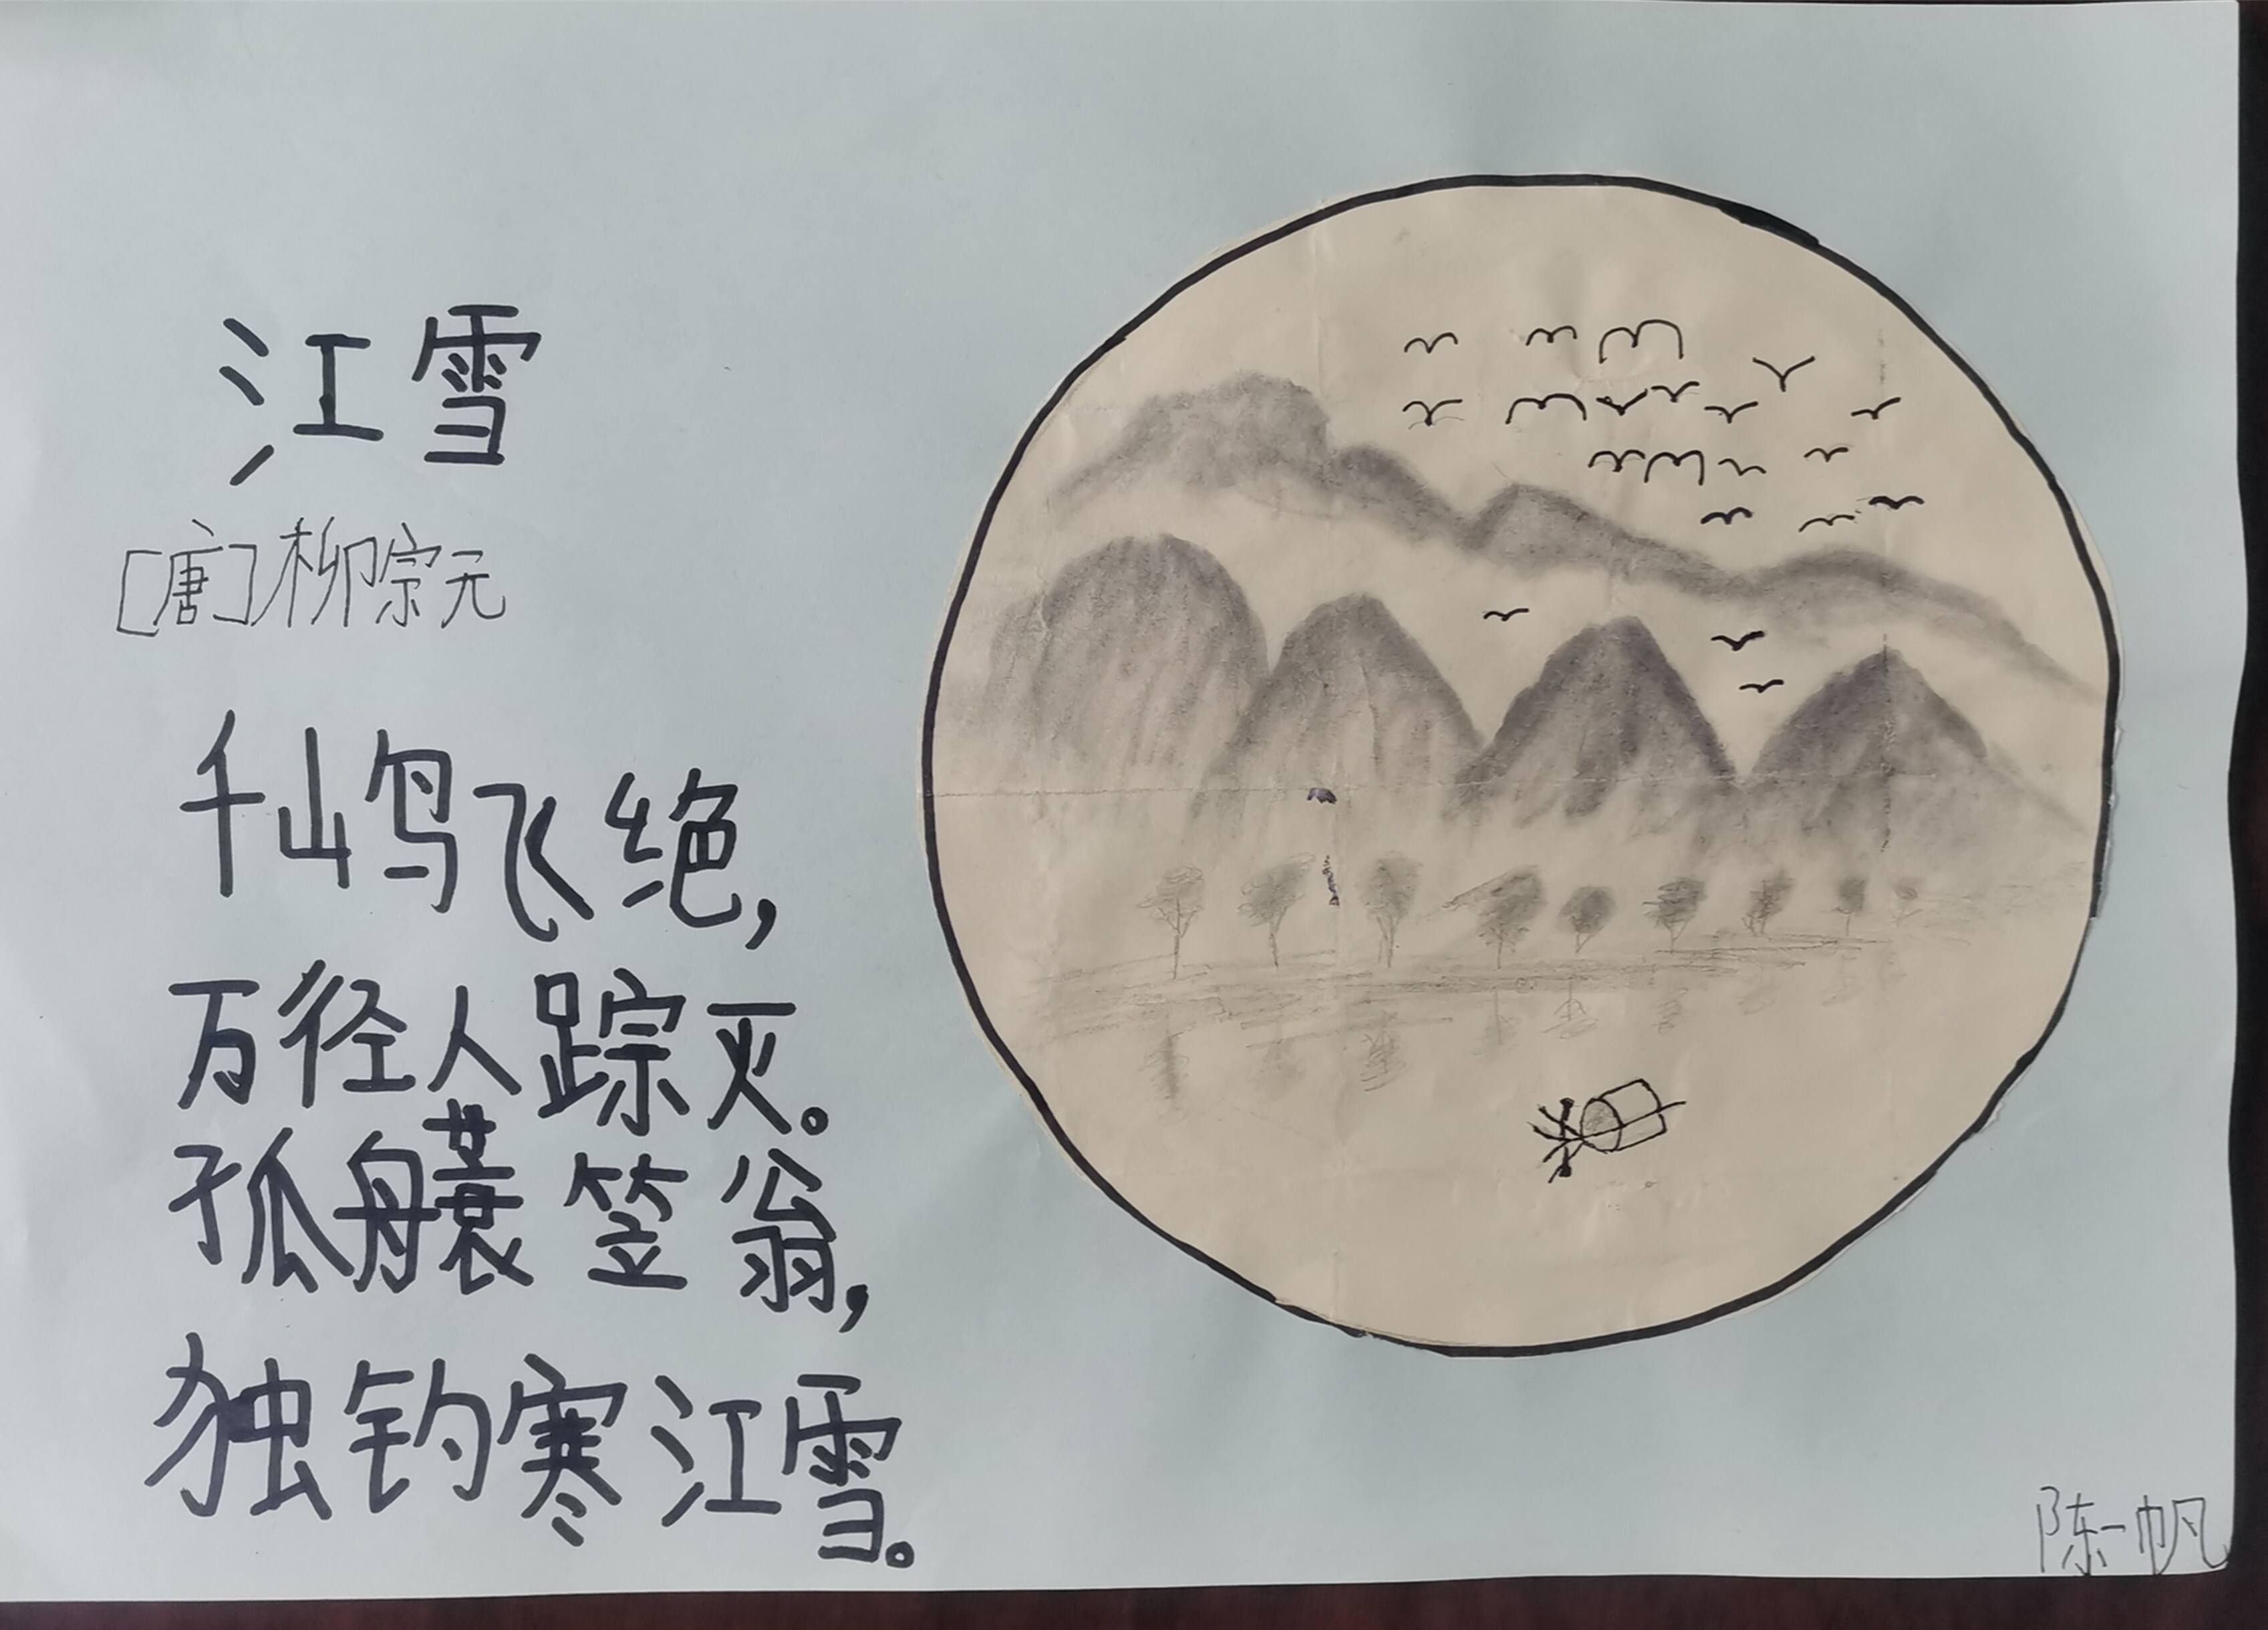 江雪
[唐]柳宗元
千山鸟飞绝,
万径人踪灭。
孤舟蓑笠翁,
独钓寒江雪。
陈一帆